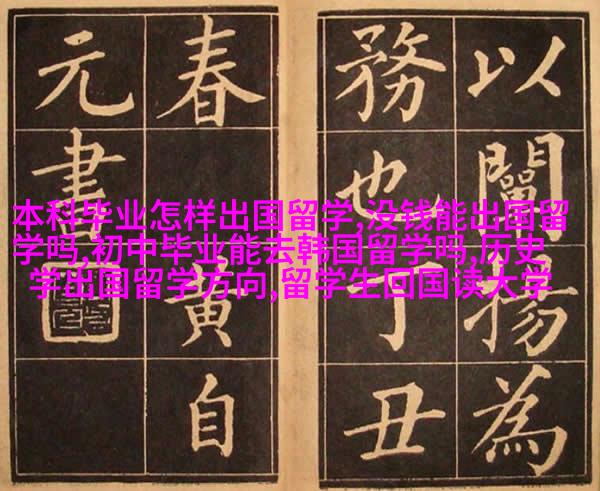 以闡揚為
務也丁丑
春黃自
元書
本科毕业怎样出国留学,没钱能出国留
学吗,初中毕业能去韩国留学吗,历史
学出国留学方向,留学生回国读大学